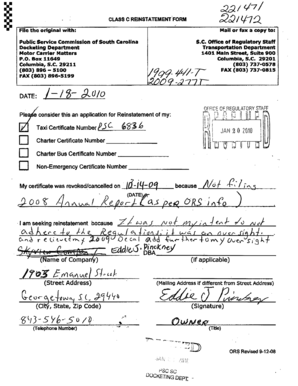 221471
221472
CLASS C REINSTATEMENT FORM
File the original with:
Mail or fax a copy to:
Public Service Commission of South Carolina
Docketing Department
Motor Carrier Matters
P.O. Box 11649
Columbia, S.C. 29211
(803) 896 - 5100
FAX (803) 896-5199
S.C. Office of Regulatory Staff
Transportation Department
1401 Main Street, Suite 900
Columbia, S.C. 29201
(803) 737-0578
FAX (803) 737-0815
1909-441-T
2009-277T
DATE: 1-18-2010
OFFICE OF REGULATORY STAFF
JAN 20 2010
Please consider this an application for Reinstatement of my:
Taxi Certificate Number PSC 6836
Charter Certificate Number
Charter Bus Certificate Number
Non-Emergency Certificate Number
My certificate was revoked/cancelled on 10-14-09 because Not filing
(DATE)
2008 Annual Report (as per ORS info)
I am seeking reinstatement because It was not my intent do not
adhere to the Regulations it was an over sight.
and recieve my 2009 Decal add further to my over sight
Eddie J. Pinckney
DBA
(Name of Company)
(if applicable)
1903 Emanuel Street
(Street Address)
(Mailing Address if different from Street Address)
Georgetown, SC, 29440
Eddie J Pinckney
(City, State, Zip Code)
(Signature)
843-546-5014
OWNER
(Telephone Number)
(Title)
ORS Revised 9-12-08
PSC SC
DOCKETING DEPT.